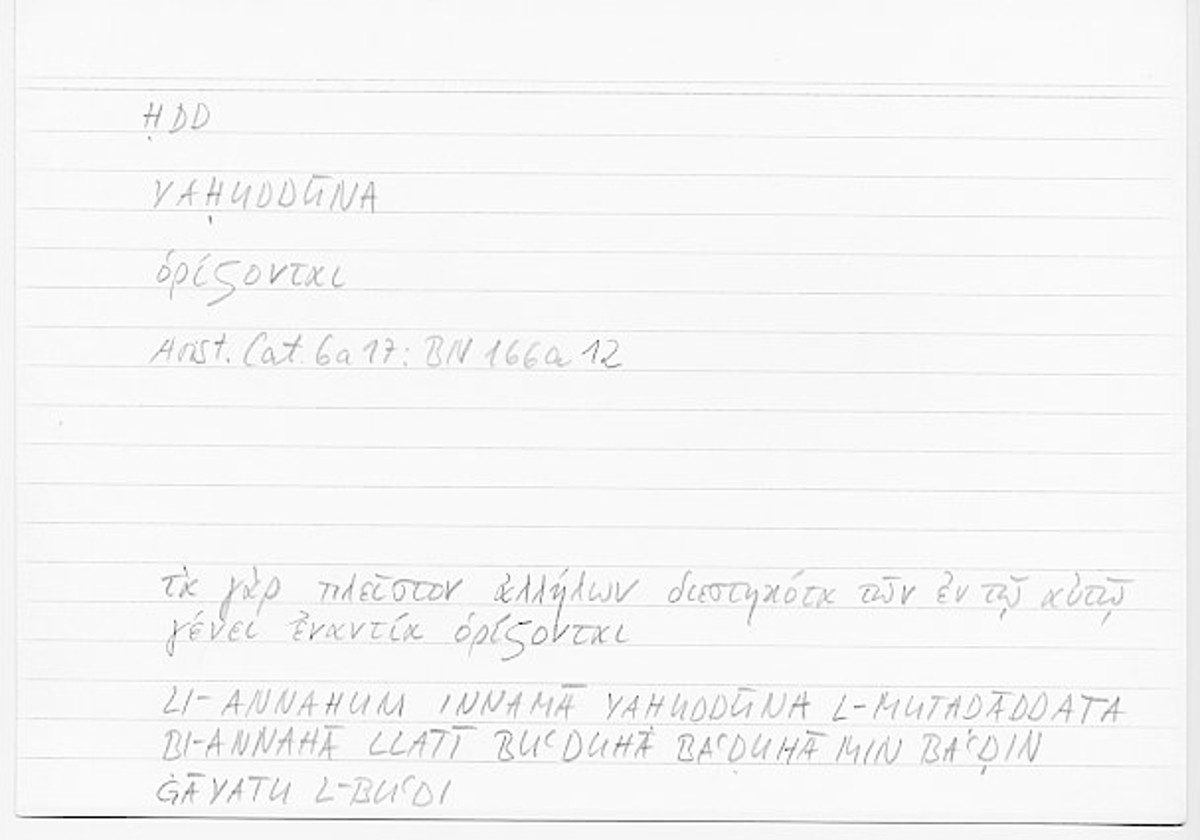 ḤDD
YAḤUDDŪNA
ὁρίζονται
Arist. Cat. 6a17: BN 166a12
τὰ γὰρ πλεῖστον ἀλλήλων διεστηκότα τῶν ἐν τῷ αὐτῷ
γένει ἐναντία ὁρίζονται
LI-ANNAHUM INNAMĀ YAHUDDŪNA L-MUTADĀDDATA
BI-ANNAHĀ LLATĪ BUʿDUHĀ BAʿḌUHĀ MIN BAʿḌIN
ĠĀYATU L-BUʿDI